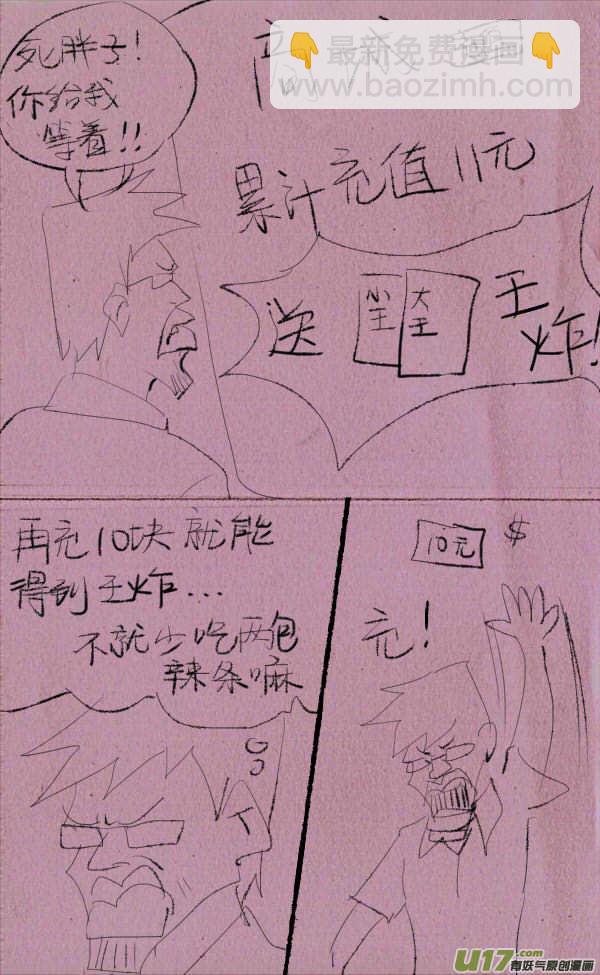 死胖子!
你给我
等着!!
最新免费漫画
www.baozimh.com
累计充值11元
送 小王 大王 王炸!
再充10块就能
得到王炸...
不就少吃两包
辣条嘛
10元 $
充!
U17.com
有妖气原创漫画